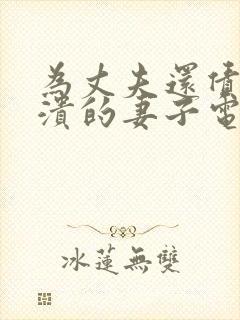 為丈夫還債
潰的妻子電
冰蓮無雙